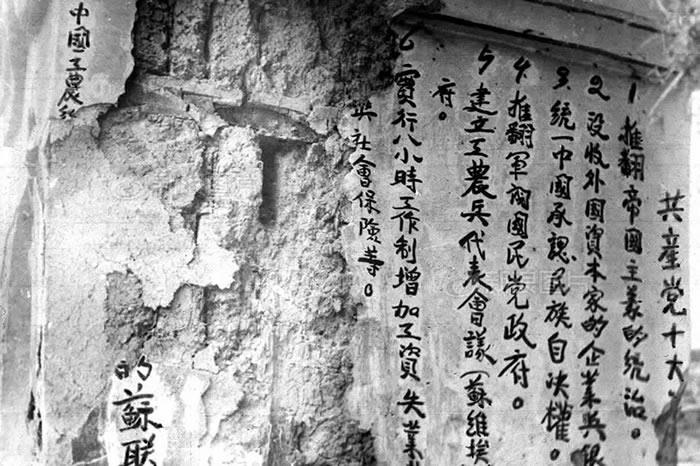 共産党十大
1 推翻帝國主義的統治。
2 没收外國資本家的企業與銀
3 統一中國承認民族自决權。
4 推翻軍阀國民党政府。
5 建立工農兵代表會議(蘇維埃
府。
6 實行八小時工作制增加工資失業
與社會保險等。
中國工農红
的蘇联